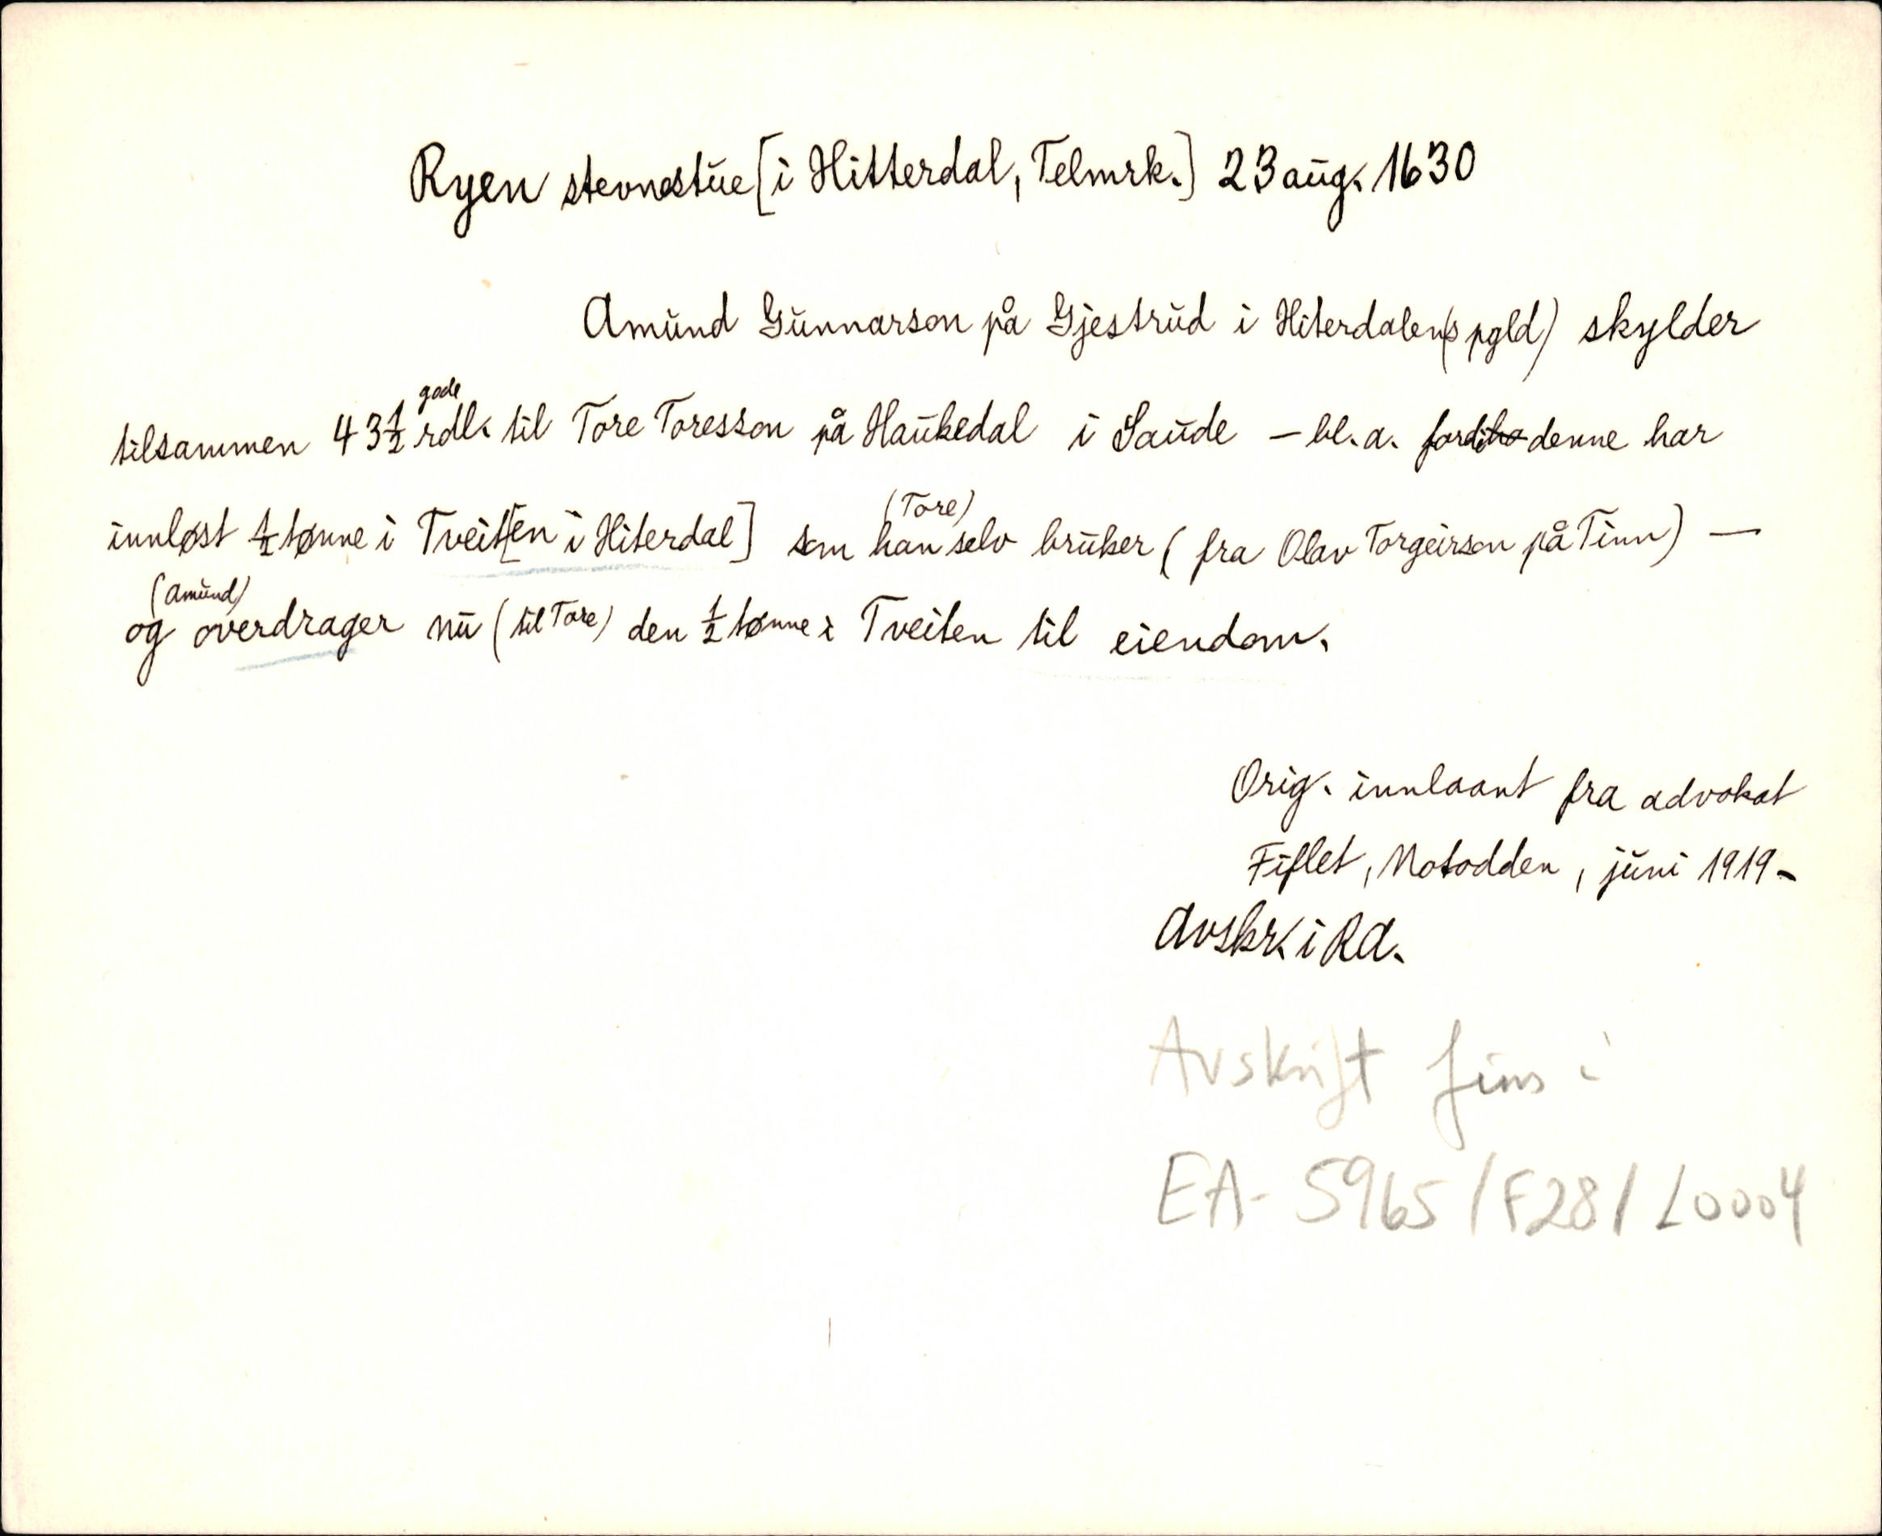 Ryen stevnestue [i Hitterdal, Telmrk.] 23 aug. 1630
Amund Gunnarson på Gjestrud i Hiterdalen(s pgld) skylder
tilsammen 43½ gode rdl. til Tore Toresson på Haukedal i Saude – bl. a. fordi ho denne har
innløst ½ tønne i Tveit[en i Hiterdal] som han (Tore) selv bruker (fra Olav Torgeirson på Tinn) —
og (Amund) overdrager nu (til Tore) den ½ tønne i Tveiten til eiendom.
Orig. innlaant fra advokat
Fiflet, Notodden, juni 1919 –
Avskr. i RA.
Avskrift fins i
EA- 5965/F28/L0004